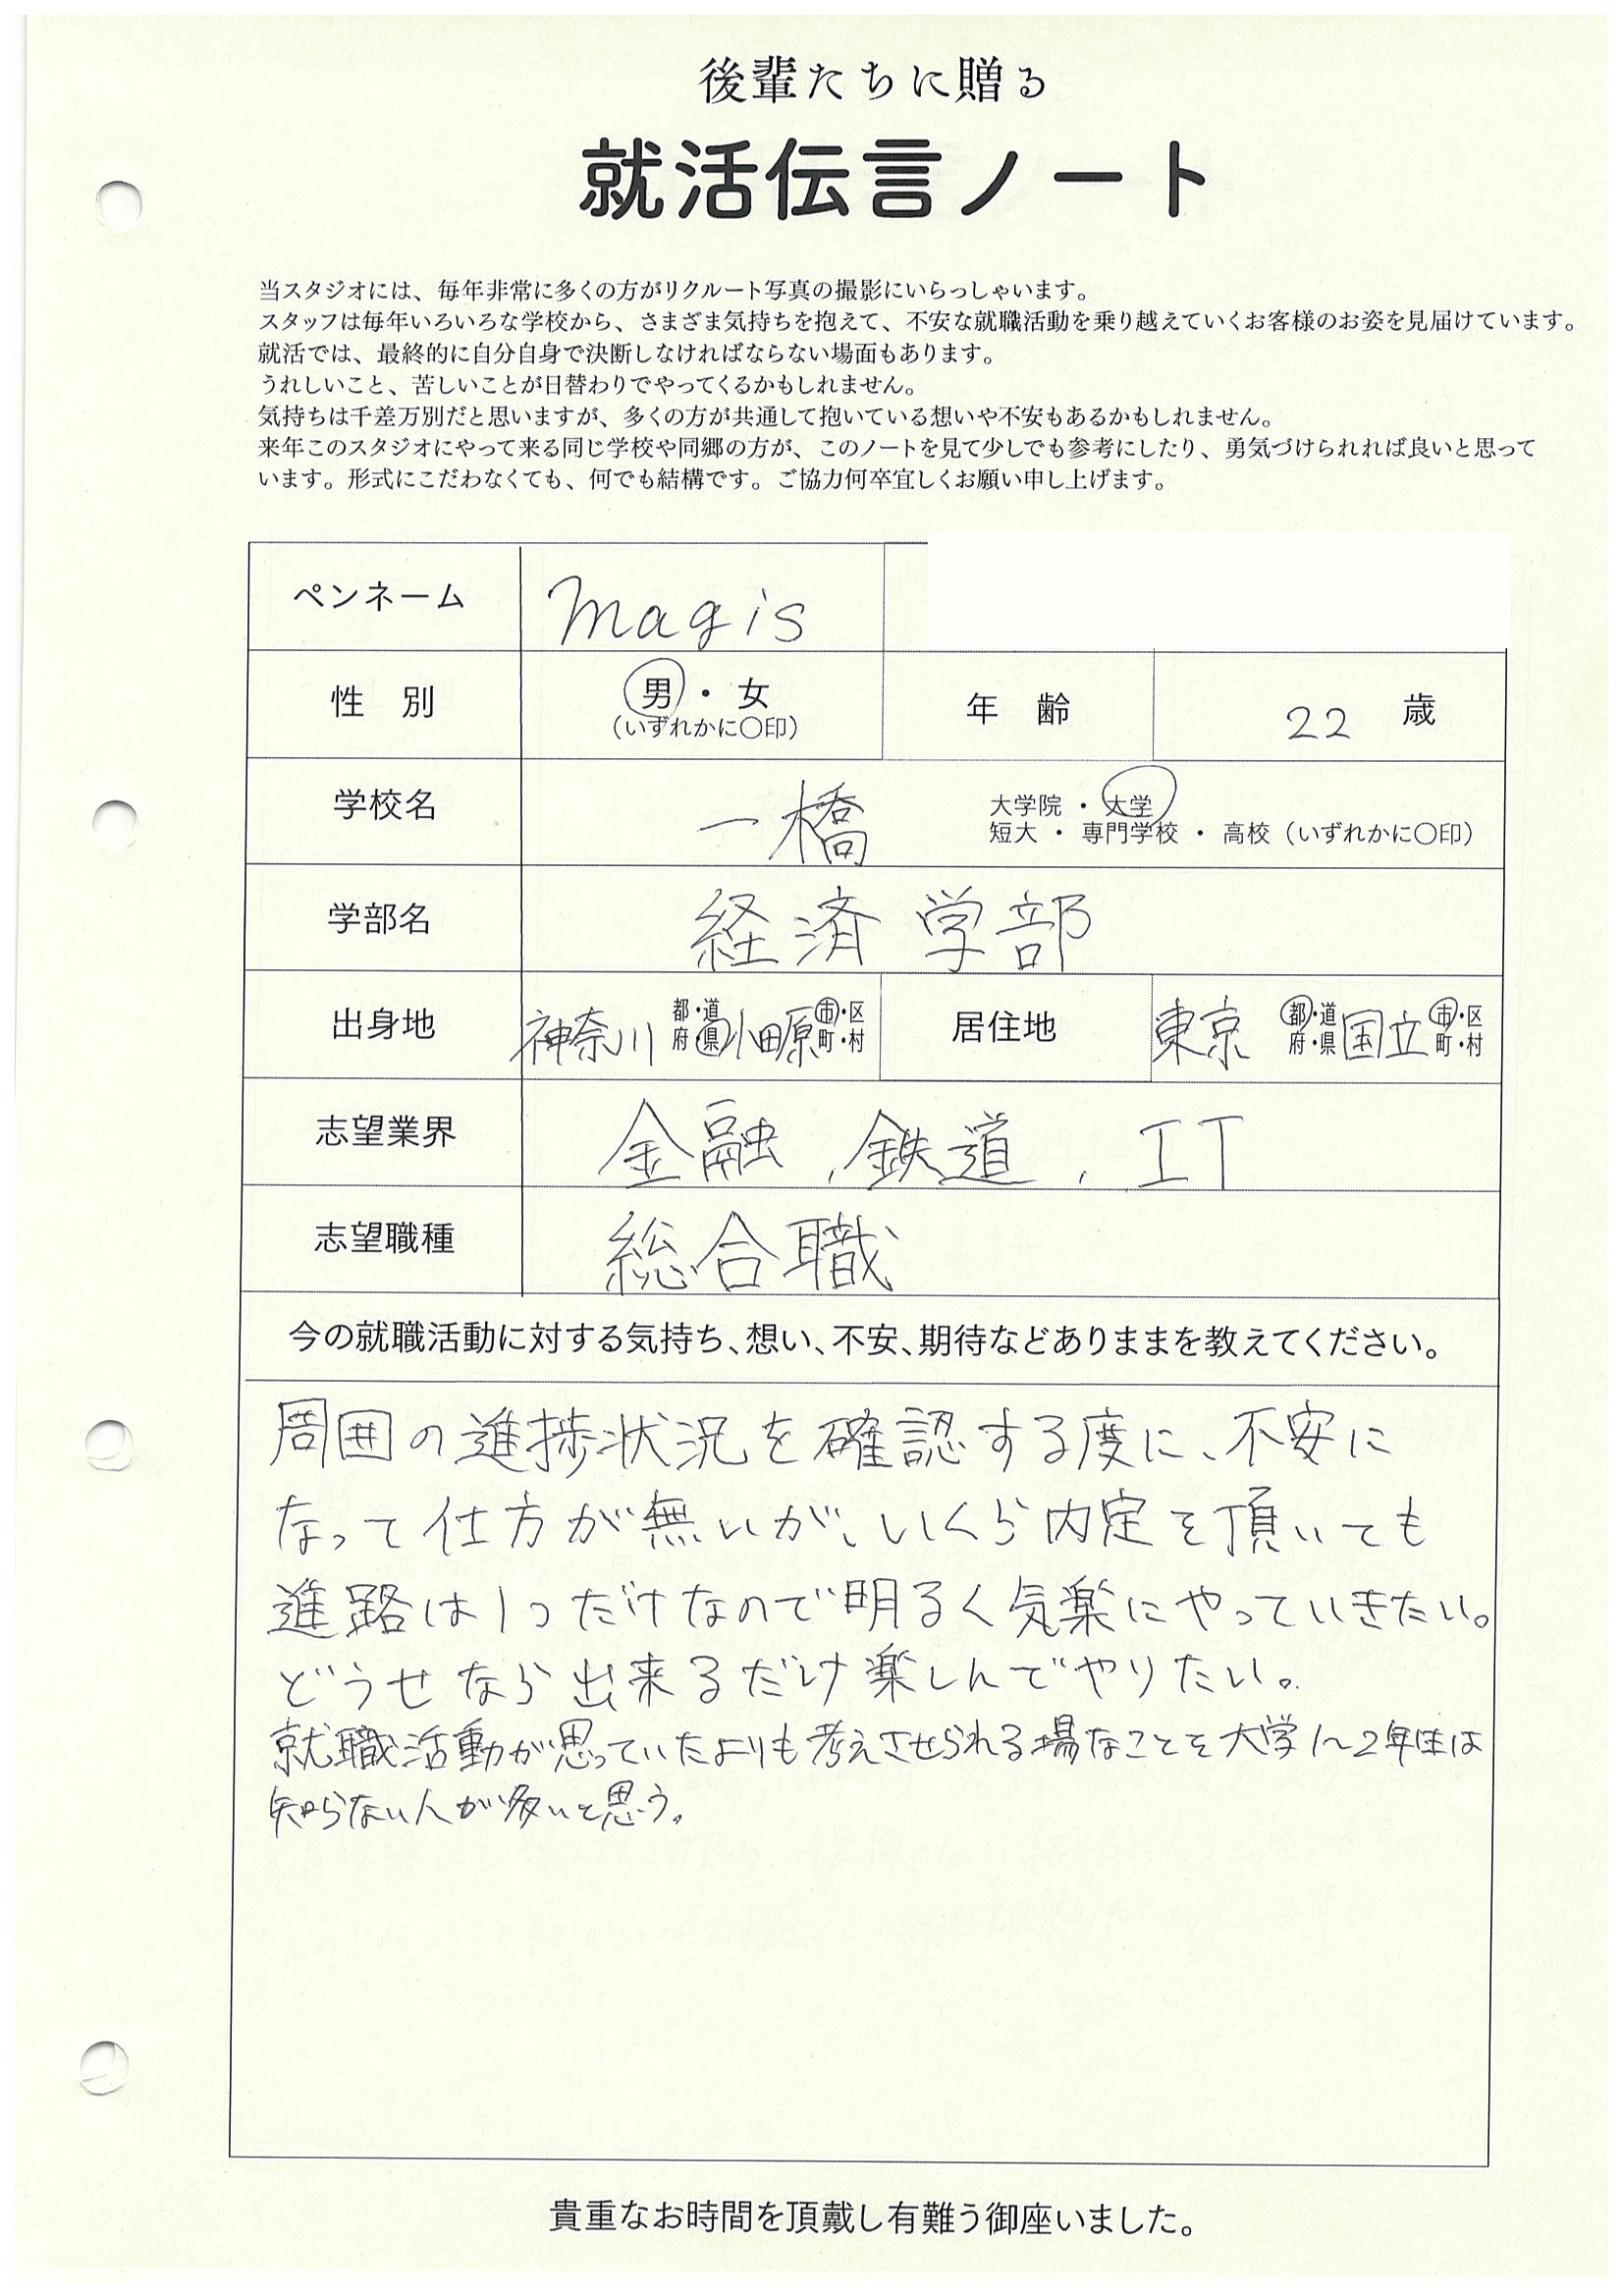 後輩たちに贈る
就活伝言ノート
当スタジオには、毎年非常に多くの方がリクルート写真の撮影にいらっしゃいます。
スタッフは毎年いろいろな学校から、さまざま気持ちを抱えて、不安な就職活動を乗り越えていくお客様のお姿を見届けています。
就活では、最終的に自分自身で決断しなければならない場面もあります。
うれしいこと、苦しいことが日替わりでやってくるかもしれません。
気持ちは千差万別だと思いますが、多くの方が共通して抱いている想いや不安もあるかもしれません。
来年このスタジオにやって来る同じ学校や同郷の方が、このノートを見て少しでも参考にしたり、勇気づけられれば良いと思って
います。形式にこだわなくても、何でも結構です。ご協力何卒宜しくお願い申し上げます。
ペンネーム magis
性 別 男・女 (いずれかに〇印) 年 齢 22 歳
学校名 一橋 大学院 ・ 大学
短大 ・ 専門学校 ・ 高校 (いずれかに〇印)
学部名 経済学部
出身地 神奈川 都・道府・県 小田原 市・区町・村 居住地 東京 都・道府・県 国立 市・区町・村
志望業界 金融, 鉄道, IT
志望職種 総合職
今の就職活動に対する気持ち、想い、不安、期待などありままを教えてください。
周囲の進捗状況を確認する度に、不安に
なって仕方が無いが、いくら内定を頂いても
進路は1つだけなので明るく気楽にやっていきたい。
どうせなら出来るだけ楽しんでやりたい。
就職活動が思っていたよりも考えさせられる場なことを大学1～2年生は
知らない人が多いと思う。
貴重なお時間を頂戴し有難う御座いました。